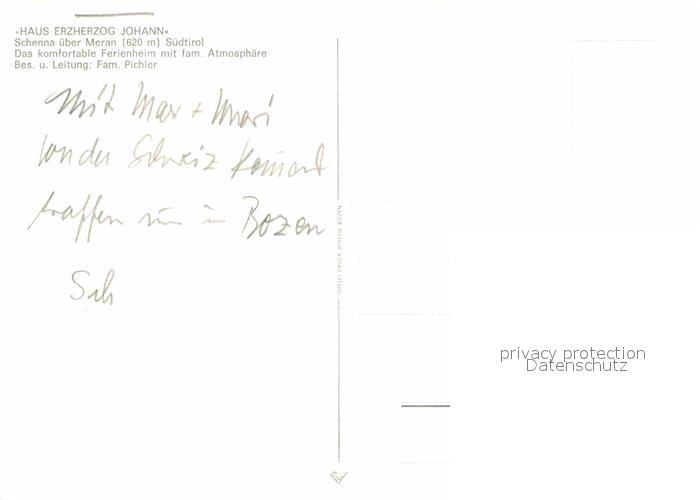 »HAUS ERZHERZOG JOHANN«
Schenna über Meran (620 m) Südtirol
Das komfortable Ferienheim mit fam. Atmosphäre
Bes. u. Leitung: Fam. Pichler
Mit Max + Mari
von der Schweiz kommend
treffen wir in Bozen
OFFSET DRUCK ATHESIA BOZEN
privacy protection
Datenschutz